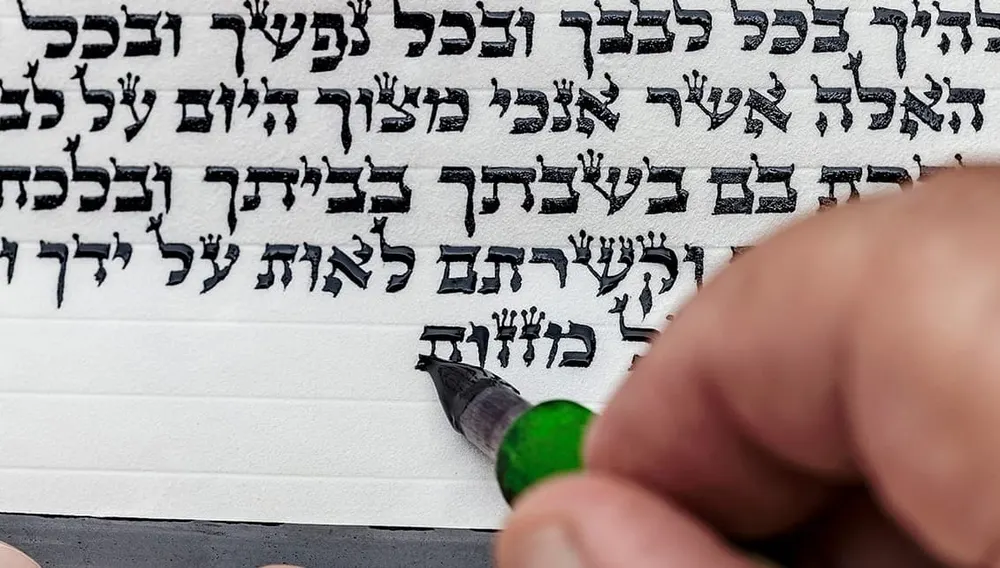 להיך בכל לבבך ובכל נפשך ובכל
האלה אשר אנכי מצוך היום על לב
בם בשבתך בביתך ובלכת
וקשרתם לאות על ידך ו
ל מזזות